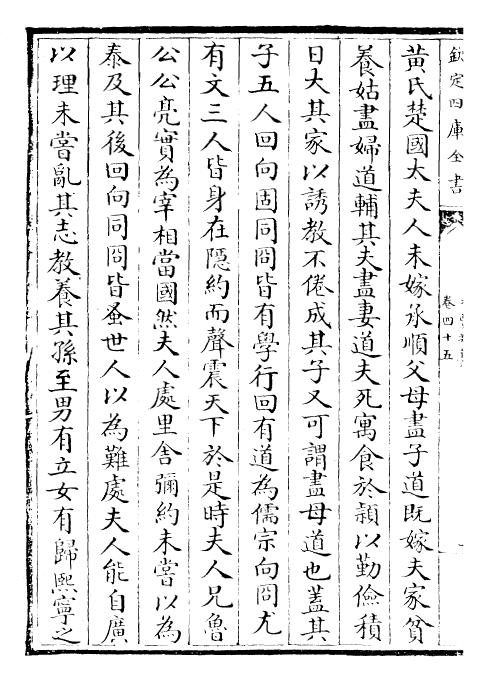 欽定四庫全書
卷四十五
黄氏楚國太夫人未嫁承順父母盡子道既嫁夫家貧
養姑盡婦道輔其夫盡妻道夫死寓食於潁以勤儉積
日大其家以誘教不倦成其子又可謂盡母道也蓋其
子五人回向固同冏皆有學行回有道為儒宗向冏尤
有文三人皆身在隱約而聲震天下於是時夫人兄魯
公公亮實為宰相當國然夫人處里舍彌約未嘗以為
泰及其後回向同冏皆蚤世人以為難處夫人能自廣
以理未嘗亂其志教養其孫至男有立女有歸熙寧之